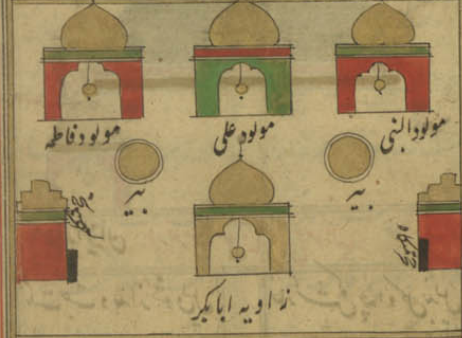 مولود النبی
مولود علی
مولود فاطمه
بیر
بیر
زاویه ابابکر